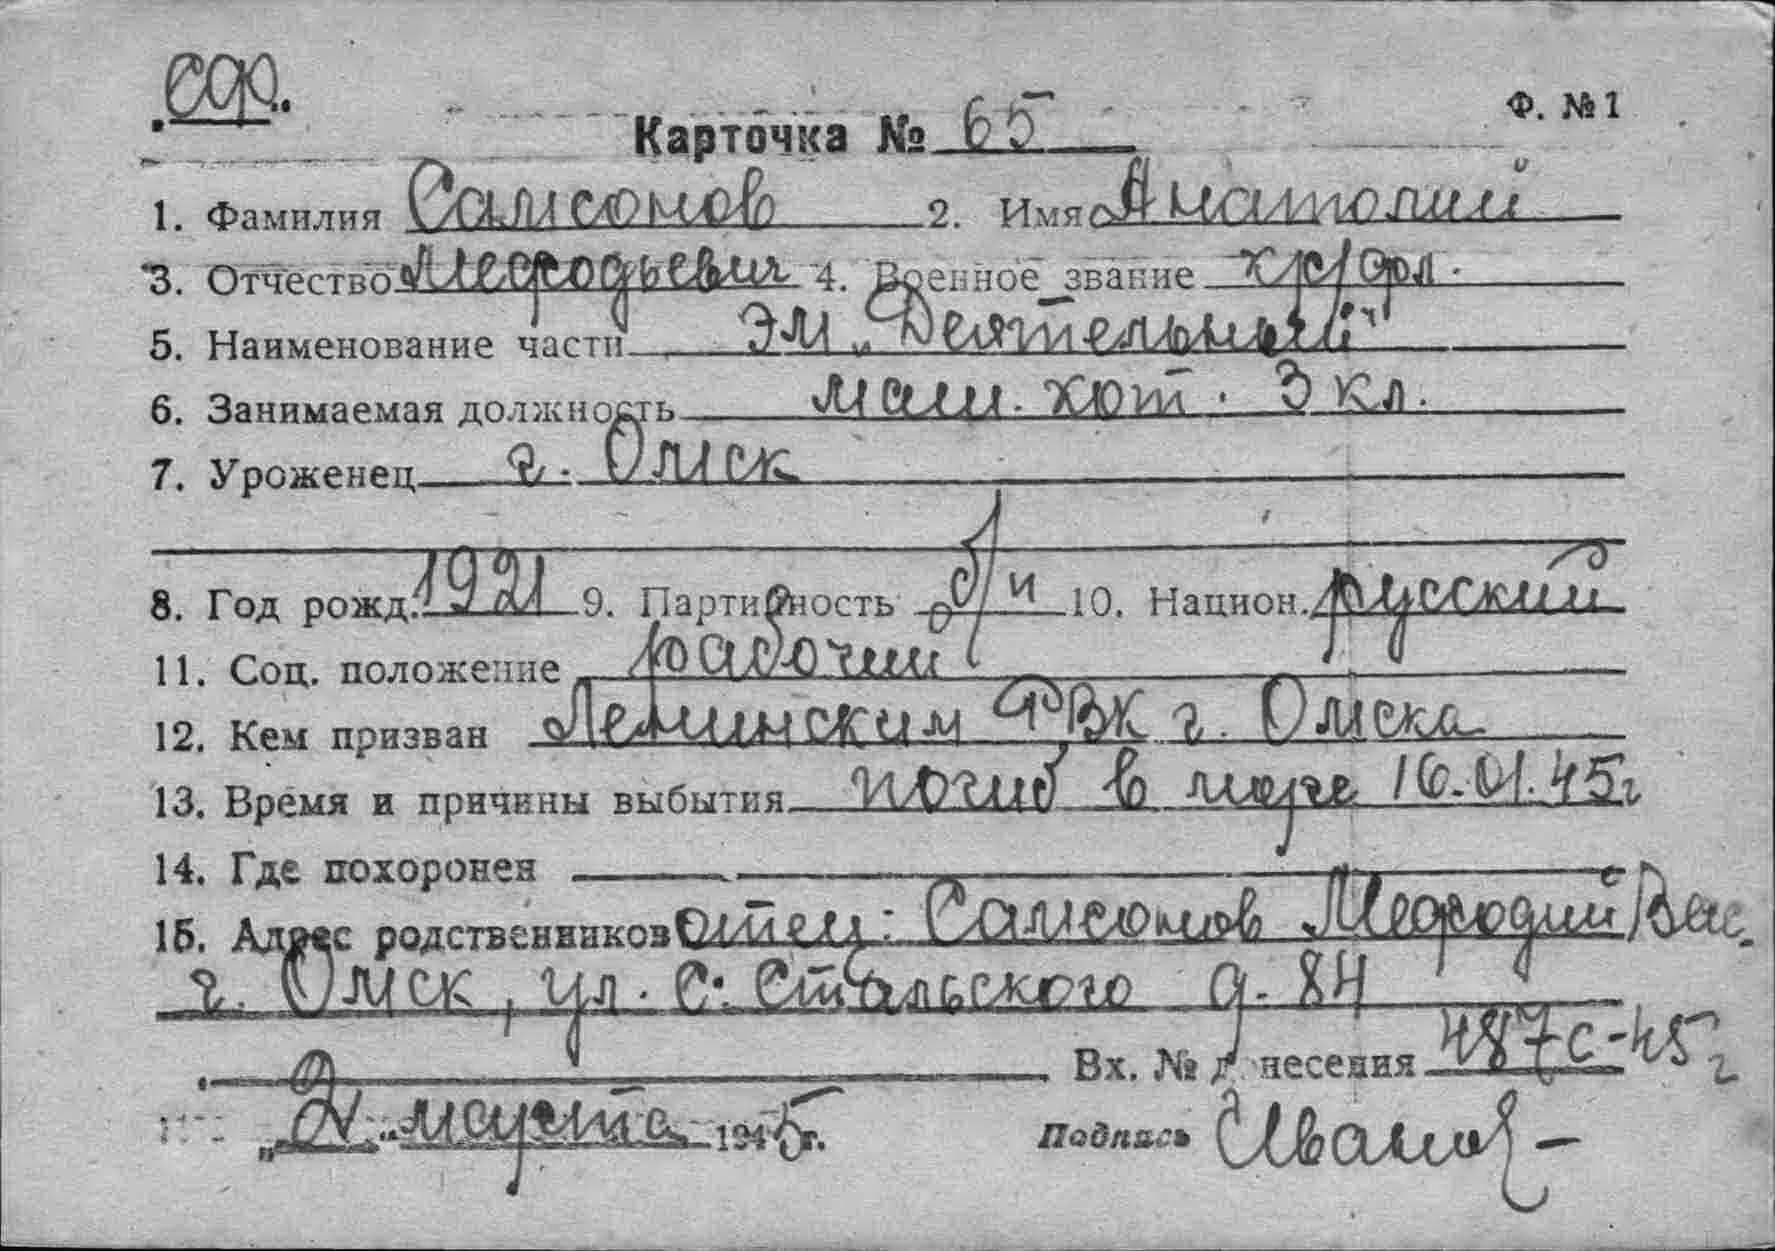 СФ.
Ф. №1
Карточка № 65
1. Фамилия Самсонов 2. Имя Анатолий
3. Отчество Мефодьевич 4. Военное звание к/с/фл.
5. Наименование части ЭМ „Деятельный"
6. Занимаемая должность маш. кот. 3 кл.
7. Уроженец г. Омск
8. Год рожд. 1921 9. Партийность б/п 10. Национ. русский
11. Соц. положение рабочий
12. Кем призван Ленинским РВК г. Омска
13. Время и причины выбытия погиб в море 16.01.45г
14. Где похоронен —
15. Адрес родственников отец: Самсонов Мефодий Вас.
г. Омск, ул. С. Стальского д. 84
Вх. № донесения 487с-45г
„2" марта 1945г. Подпись Иванов